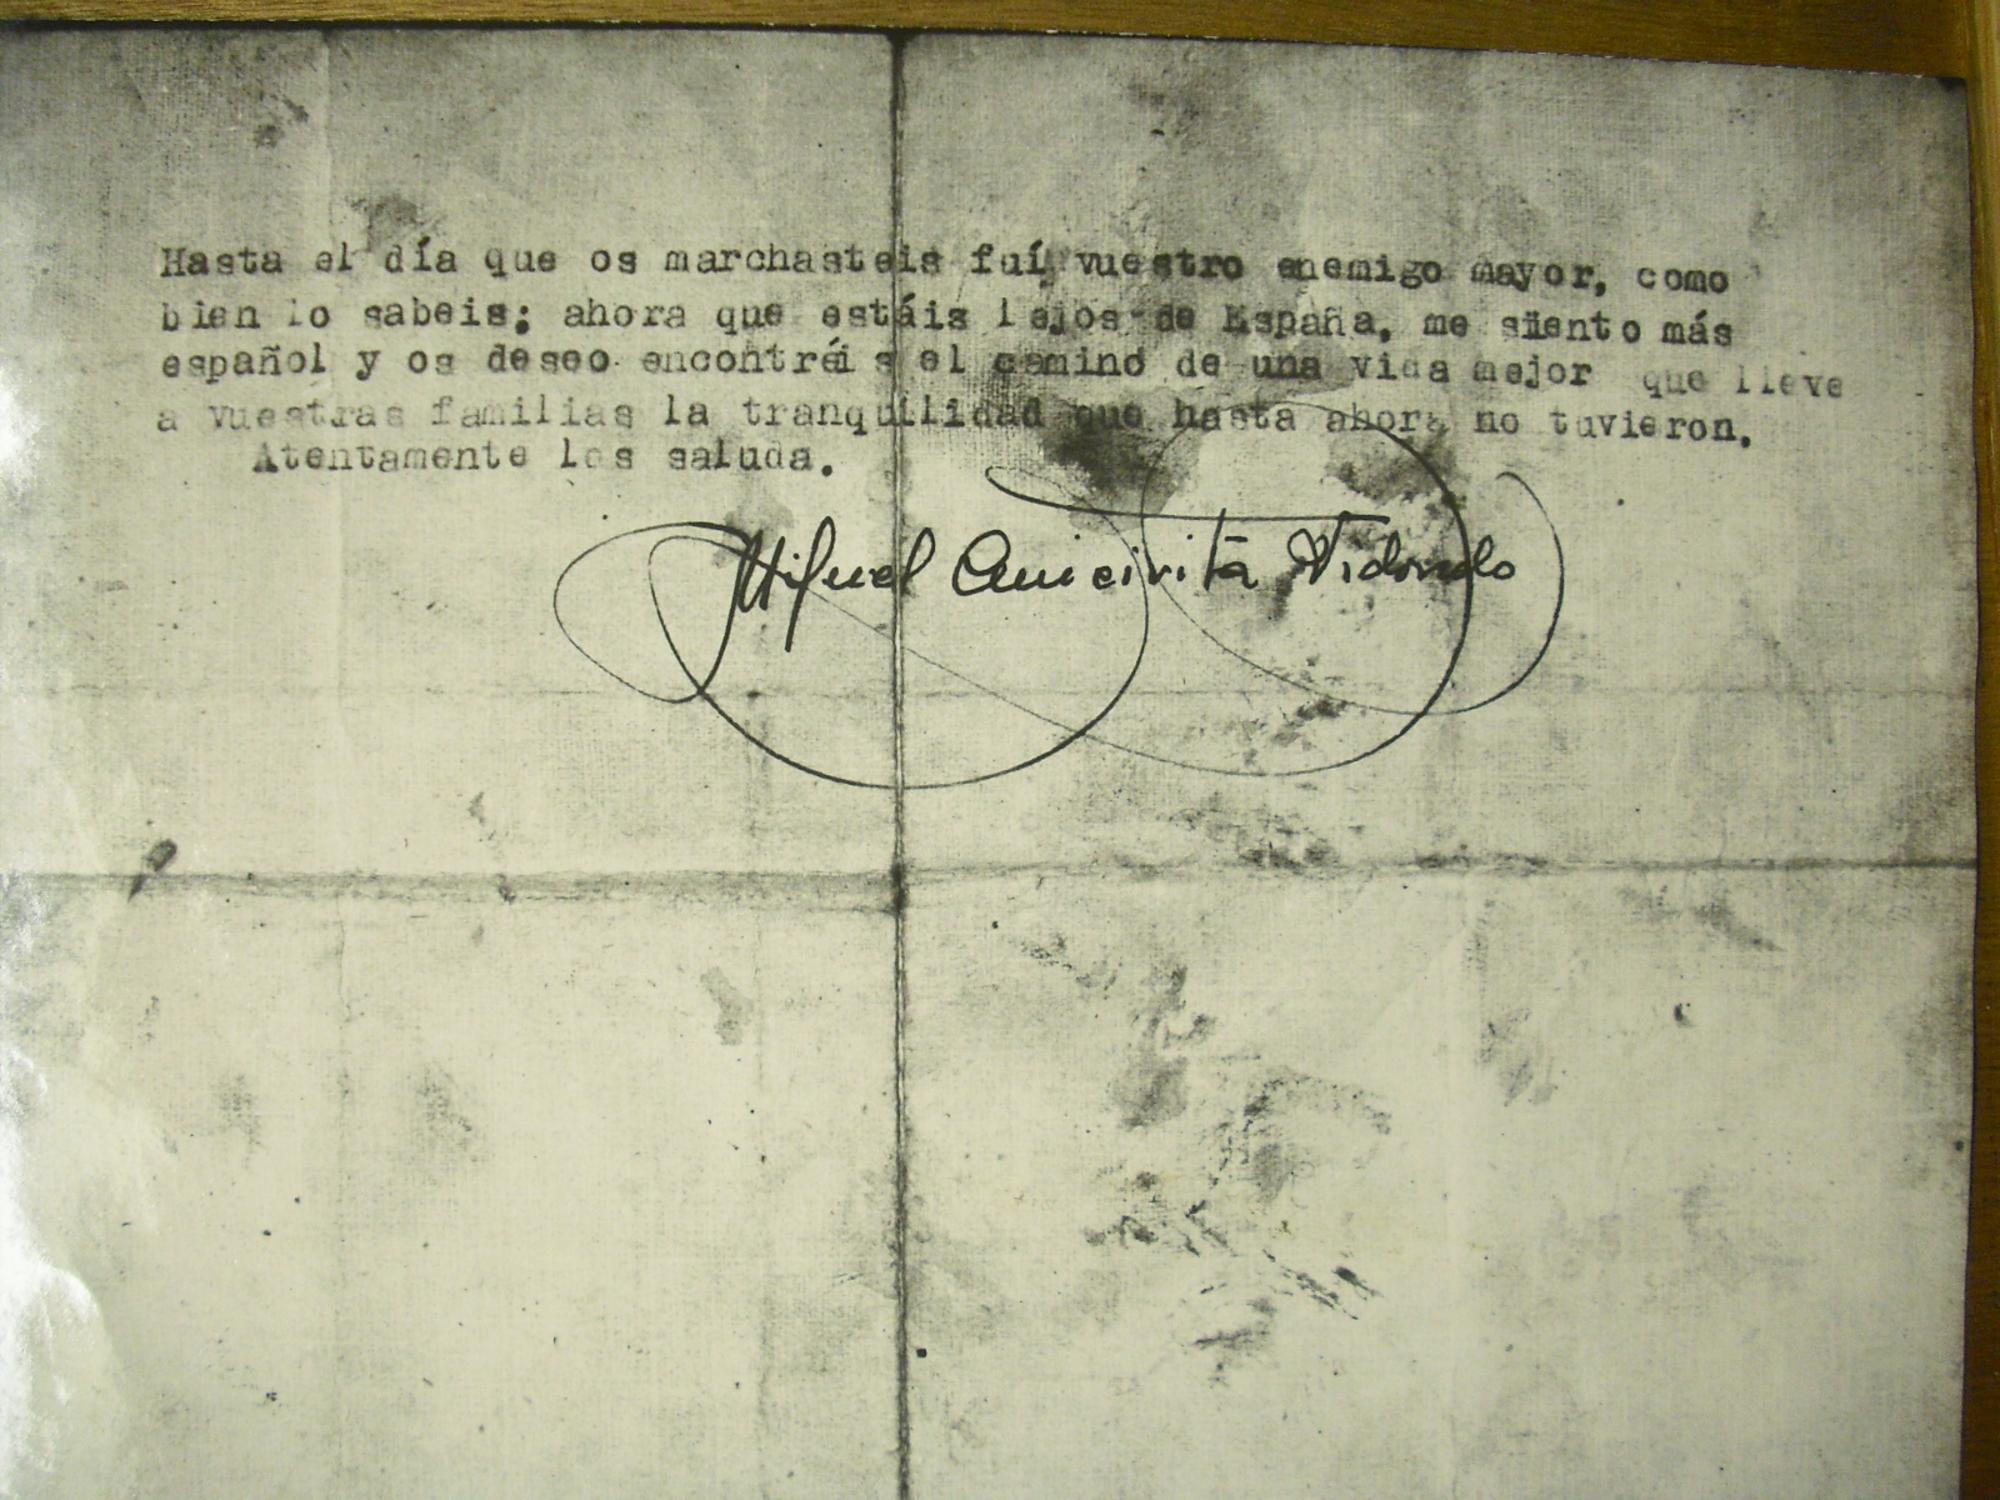 Hasta el día que os marchasteis fuí vuestro enemigo mayor, como
bien lo sabeis; ahora que estáis lejos de España, me siento más
español y os deseo encontréis el camino de una vida mejor que lleve
a vuestras familias la tranquilidad que hasta ahora no tuvieron.
Atentamente los saluda.
Miguel